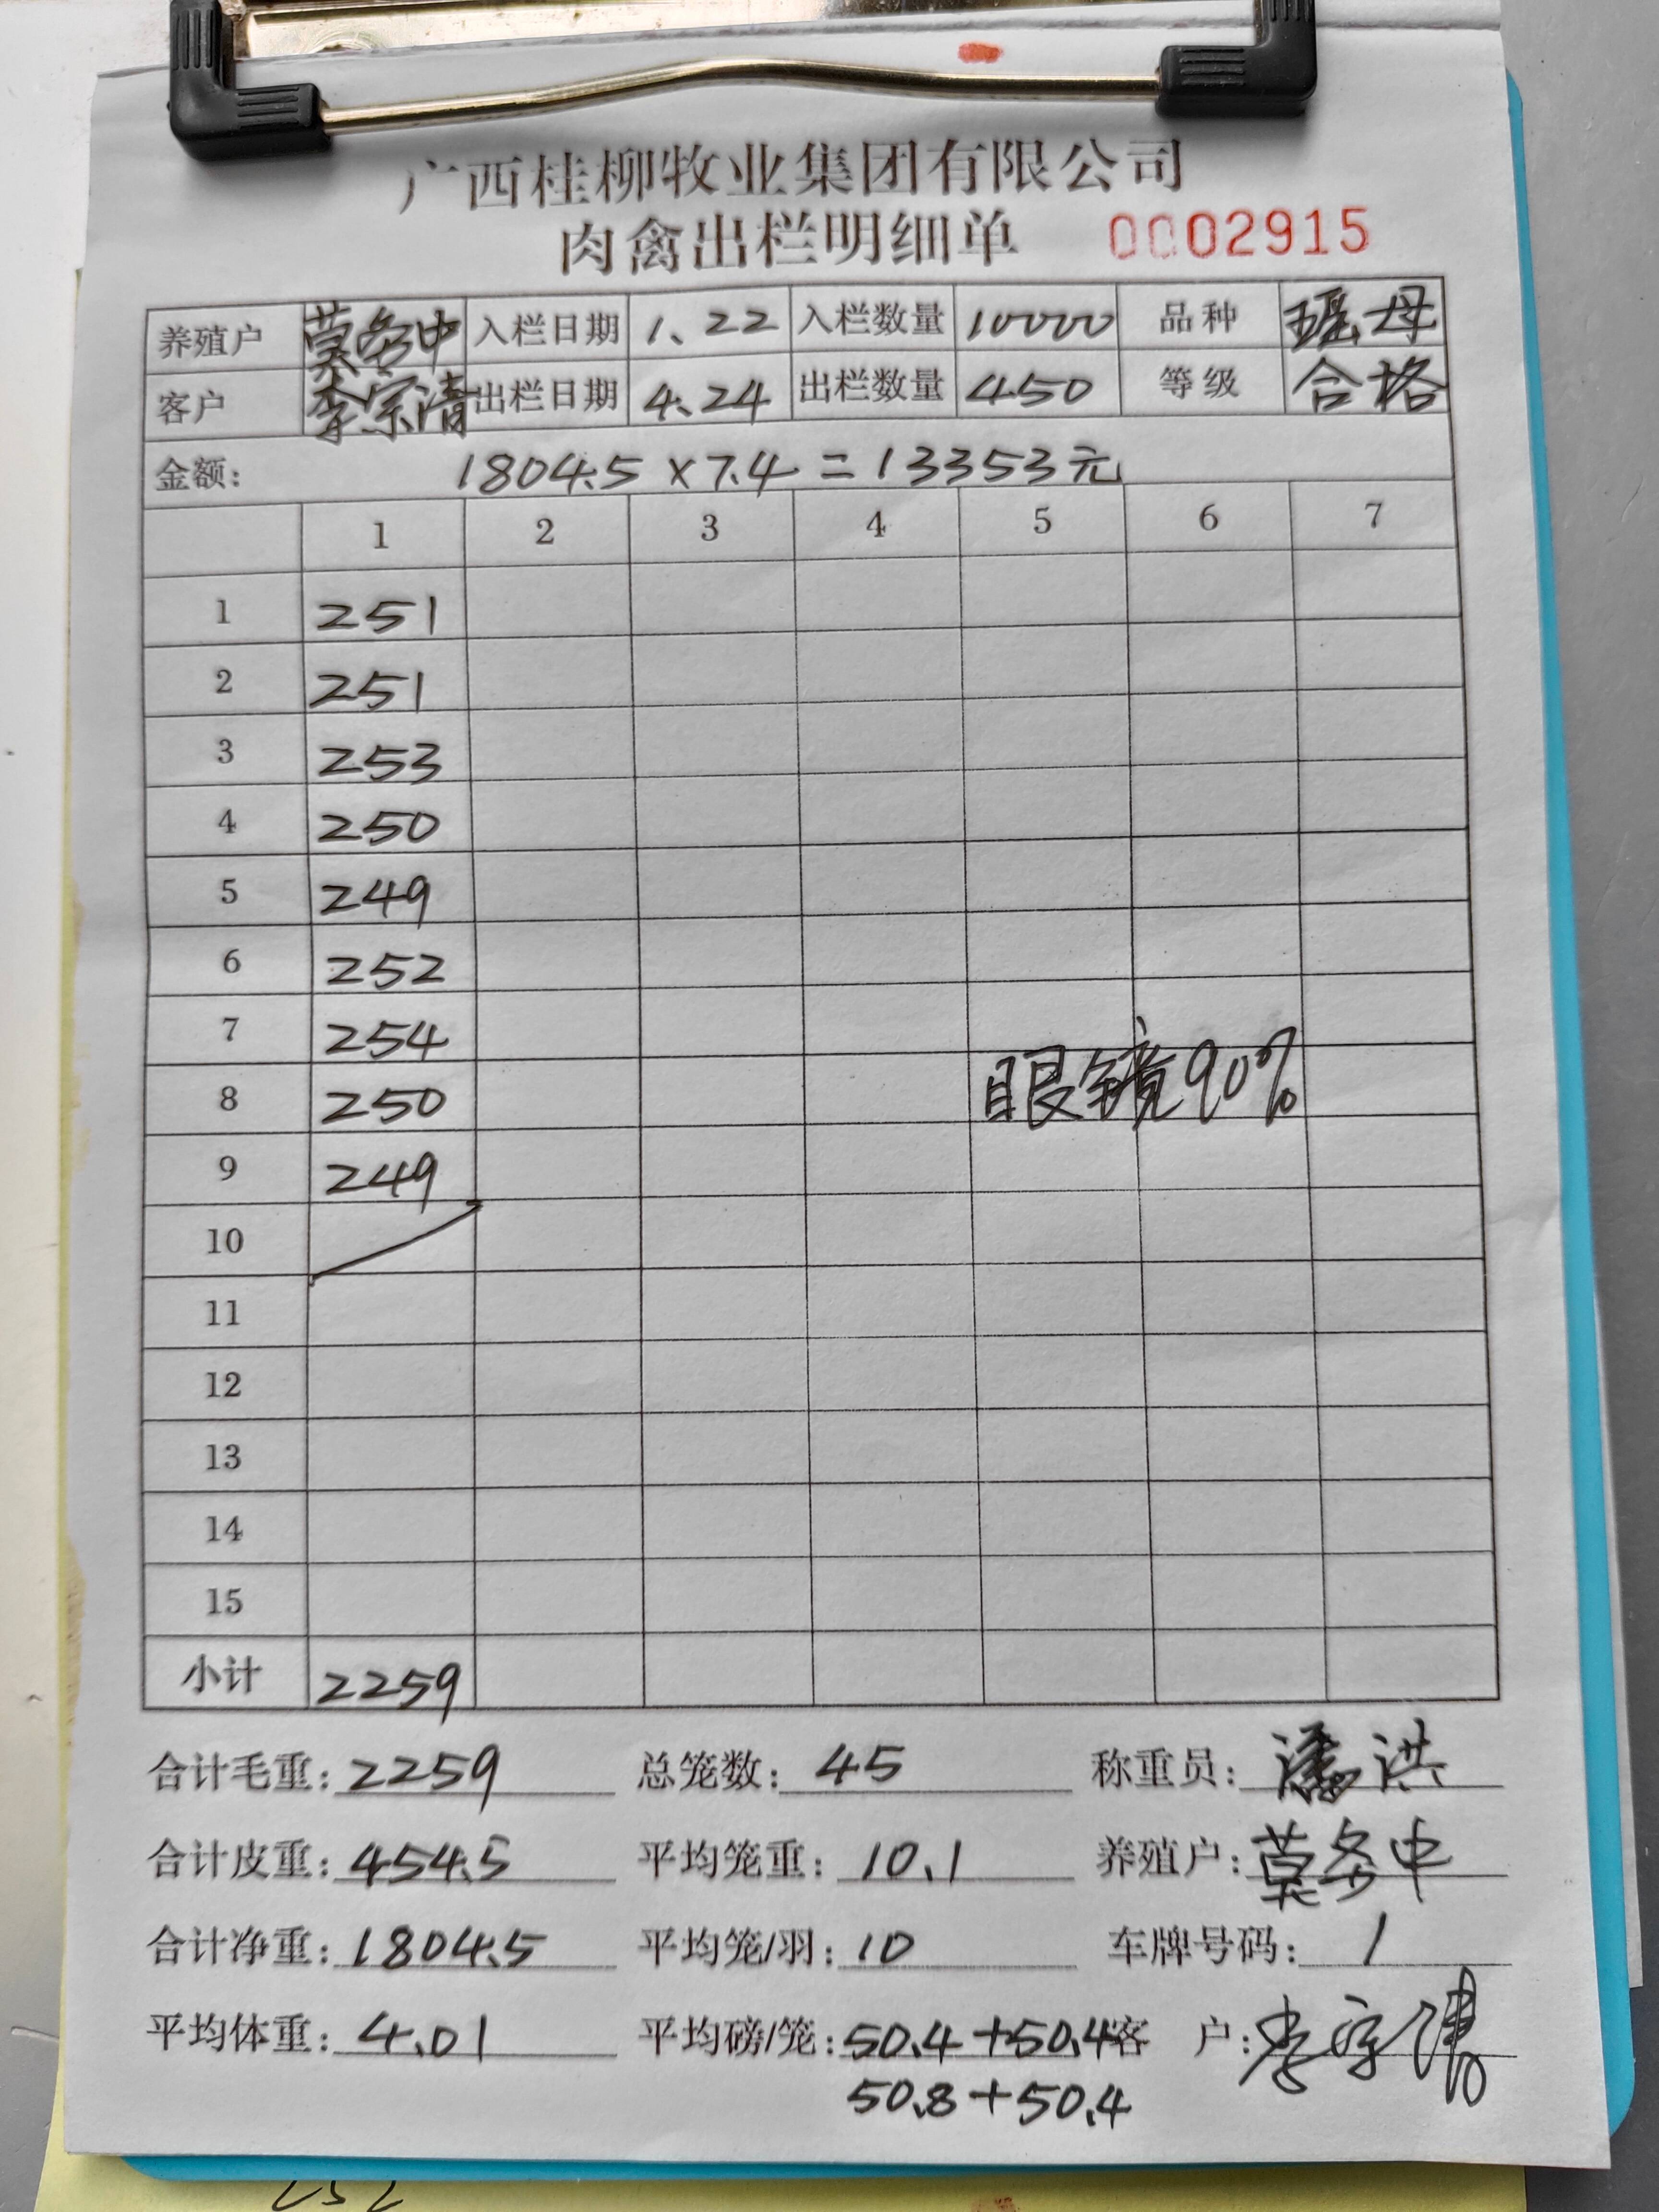 广西桂柳牧业集团有限公司
肉禽出栏明细单 0002915
养殖户 莫务中 入栏日期 1、22 入栏数量 10000 品种 瑶母
客户 李宗清 出栏日期 4.24 出栏数量 450 等级 合格
金额: 1804.5×7.4=13353元
1 2 3 4 5 6 7
1 251
2 251
3 253
4 250
5 249
6 252
7 254
8 250 眼镜90%
9 249
10
11
12
13
14
15
小计 2259
合计毛重: 2259 总笼数: 45 称重员: 潘洪
合计皮重: 454.5 平均笼重: 10.1 养殖户: 莫务中
合计净重: 1804.5 平均笼/羽: 10 车牌号码: 1
平均体重: 4.01 平均磅/笼: 50.4+50.4 客 户: 李宗清
50.8+50.4